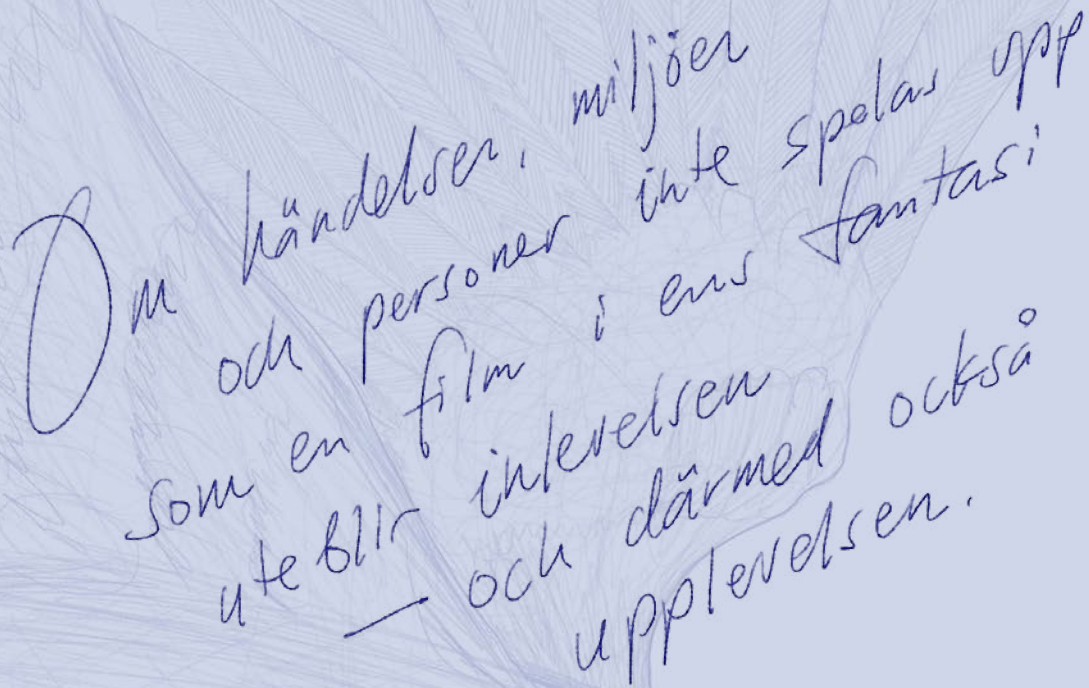 Om händelser, miljöer
och personer inte spelas upp
som en film i ens fantasi
uteblir inlevelsen
– och därmed också
upplevelsen.